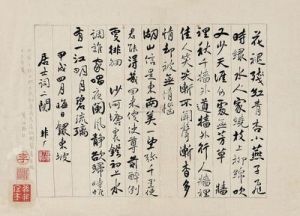 花退殘紅青杏小燕子飛
時綠水人家繞枝上柳綿吹
又少天涯何處無芳草牆
裡秋千牆外道牆外行人牆裡
佳人笑笑漸不聞聲漸杳多
情却被無情惱
湖山信是東南美一望弥千里使
君能得幾回來便使尊前醉倒
更徘徊沙河塘裏鐙初上水
調誰家唱夜闌風靜欲歸時惟
有一江明月碧琉璃
甲戌四月晦日錄東坡
居士詞二闋 非厂